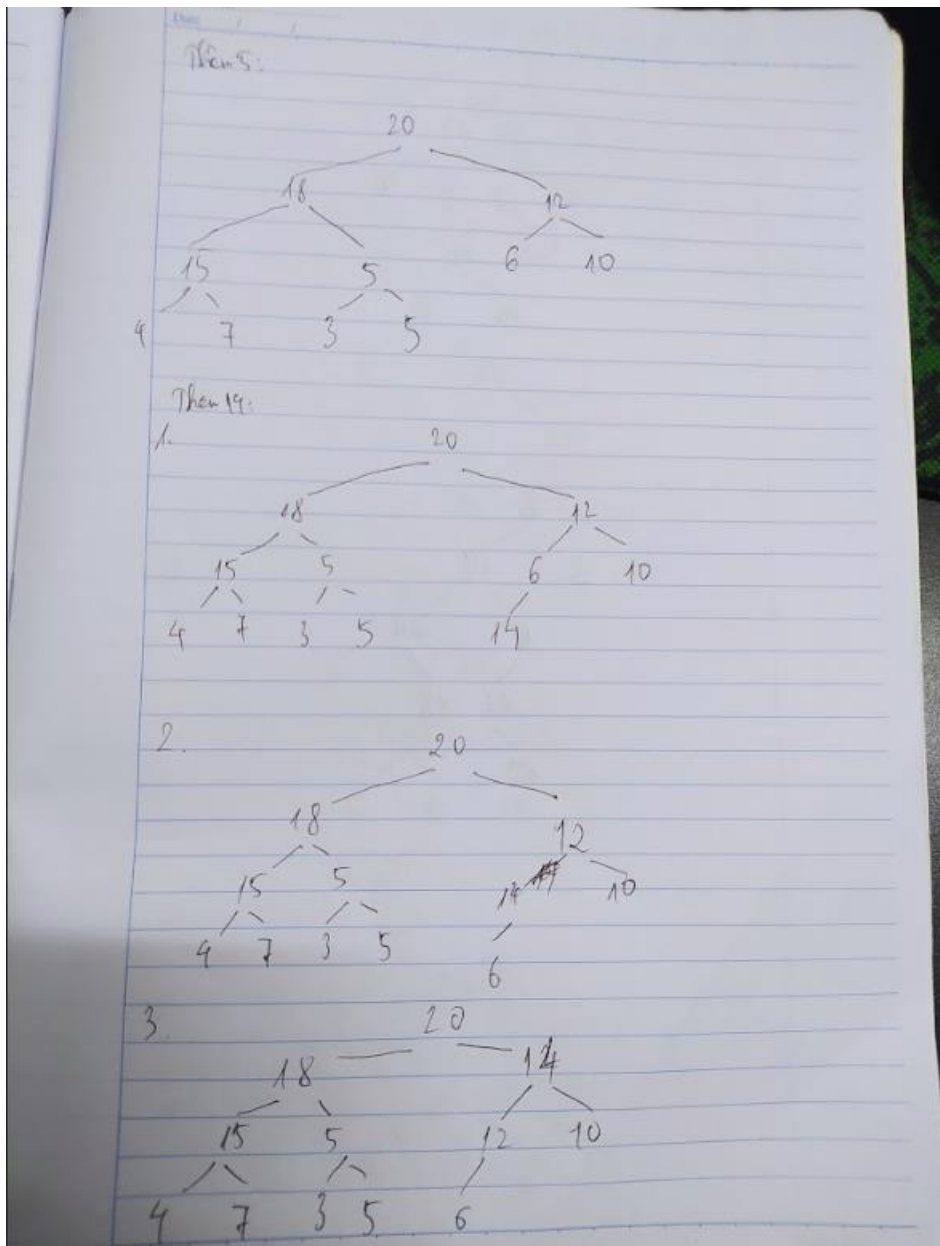 Thêm 5:
20
18 12
15 5 6 10
4 7 3 5
Thêm 14:
1.
20
18 12
15 5 6 10
4 7 3 5 14
2.
20
18 12
15 5 14 10
4 7 3 5 6
3.
20
18 14
15 5 12 10
4 7 3 5 6